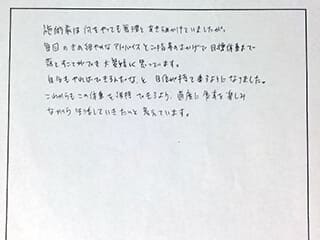 施術前は何をやっても無理とあきらめていましたが、
毎回のきめ細やかなアドバイスとご指導のおかげで目標体重まで
落とすことができ大変嬉しく思っています。
自分もやればできるんだな、と自信が持て来るようになりました。
これからもこの体重を維持できるよう、適度に食事を楽しみ
ながら生活していきたいと考えています。